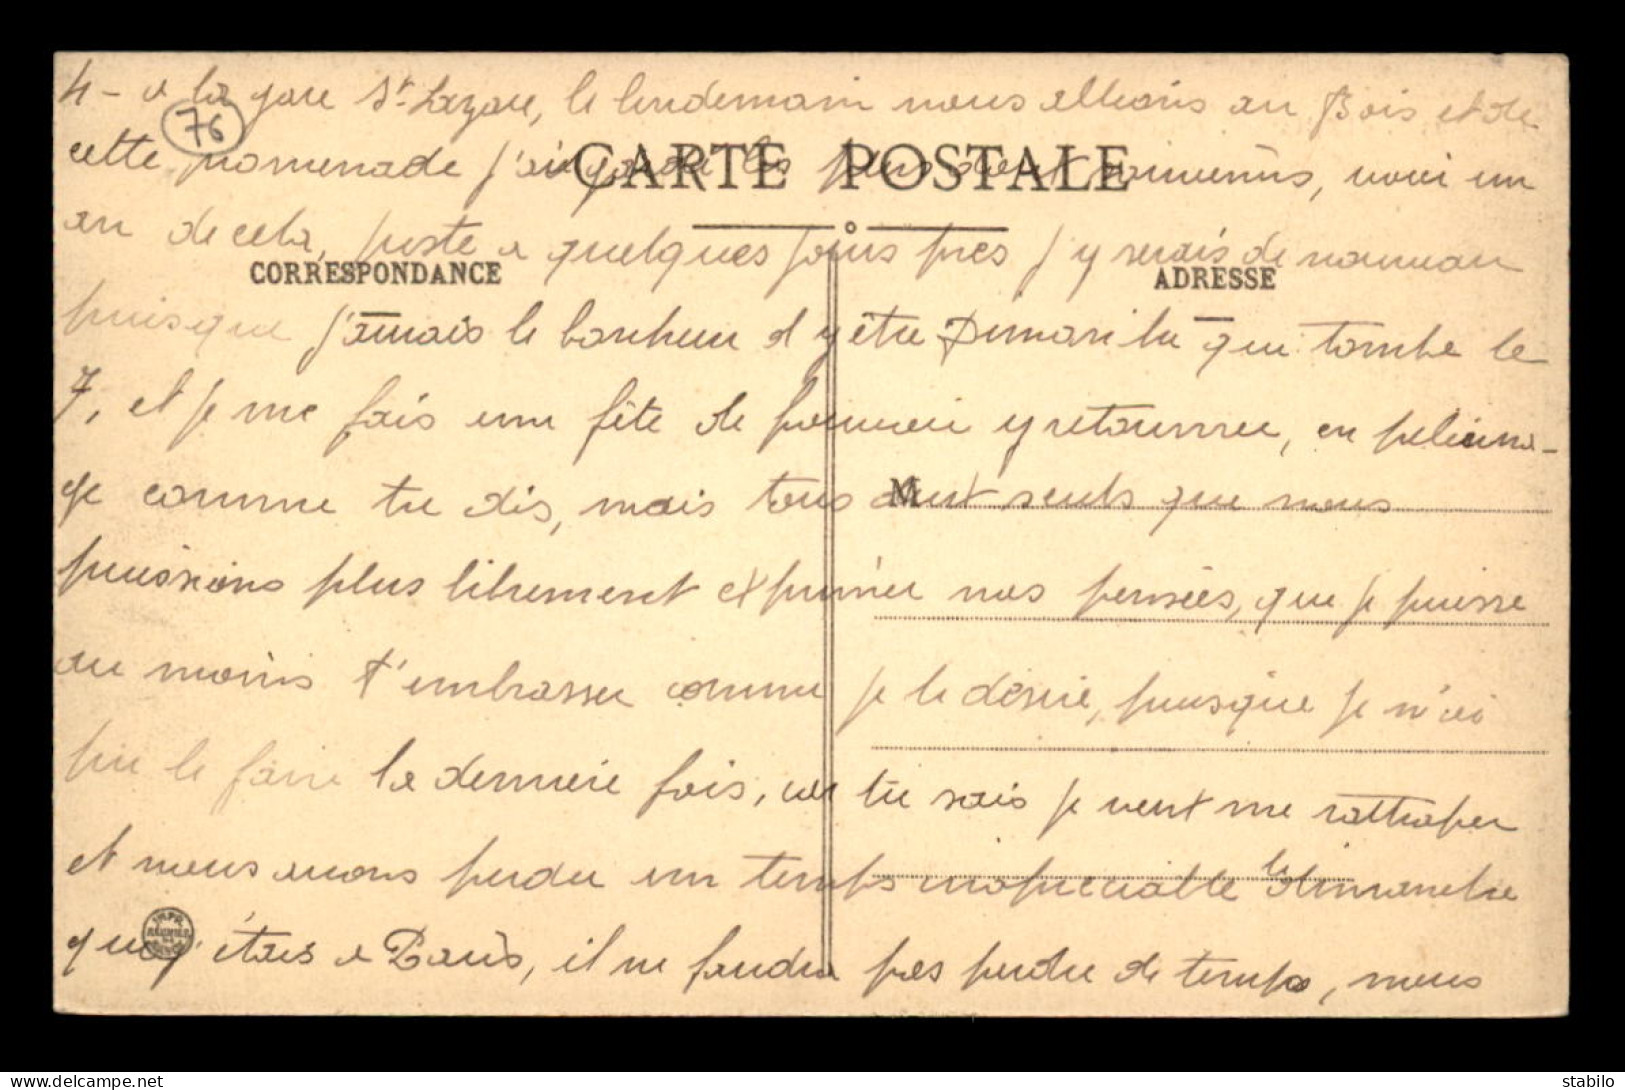 4 - a la gare St Lazare, le lendemain nous allions au Bois et de
76
cette promenade j'ai gardé les plus doux souvenirs, voici un
CARTE POSTALE
an de cela, juste a quelques jours près j'y serais de nouveau
CORRESPONDANCE
ADRESSE
puisque j'aurais le bonheur d'y être Dimanche qui tombe le
7, et je me fais une fête de pouvoir y retourner, en pélerina-
ge comme tu dis, mais tous deux seuls que nous
M
puissions plus librement exprimer nos pensées, que je puisse
au moins t'embrasser comme je le désire, puisque je n'ai
pu le faire la dernière fois, car tu sais je veux me rattraper
et nous avons perdu un temps inapréciable le dimanche
que j'étais a Paris, il ne faudra pas perdre de temps, nous
delcampe.net
stabilo